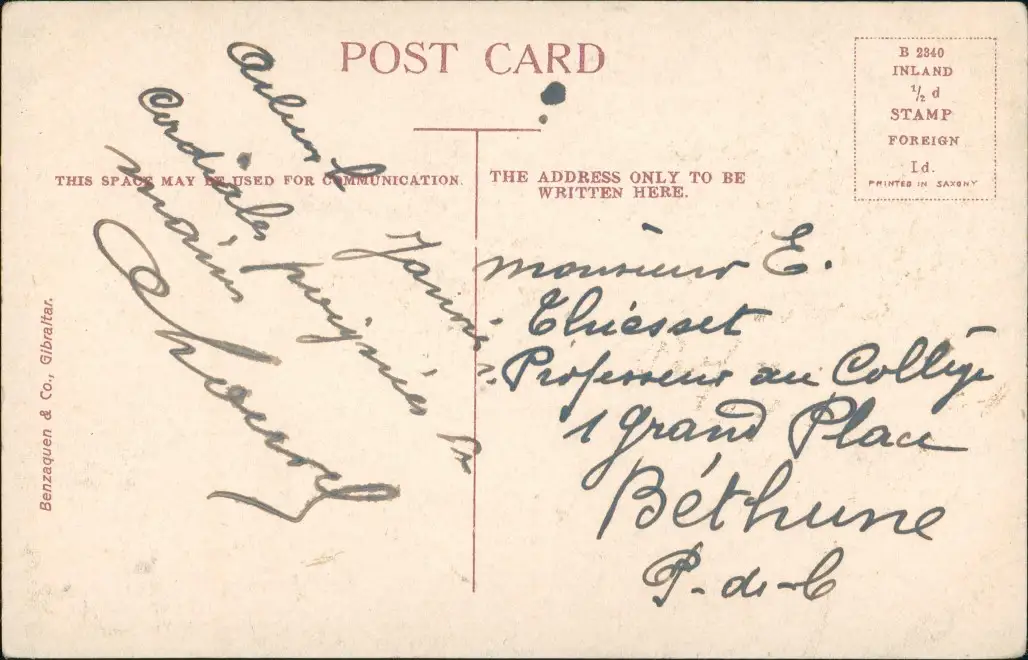 POST CARD
B 2340
INLAND
½ d
STAMP
FOREIGN
1d.
PRINTED IN SAXONY
THIS SPACE MAY BE USED FOR COMMUNICATION.
THE ADDRESS ONLY TO BE
WRITTEN HERE.
Benzaquen & Co., Gibraltar.
Cordiales poignées de
mains
monsieur E.
Thiesset
Professeur au Collège
1 grand Place
Béthune
P-de-C